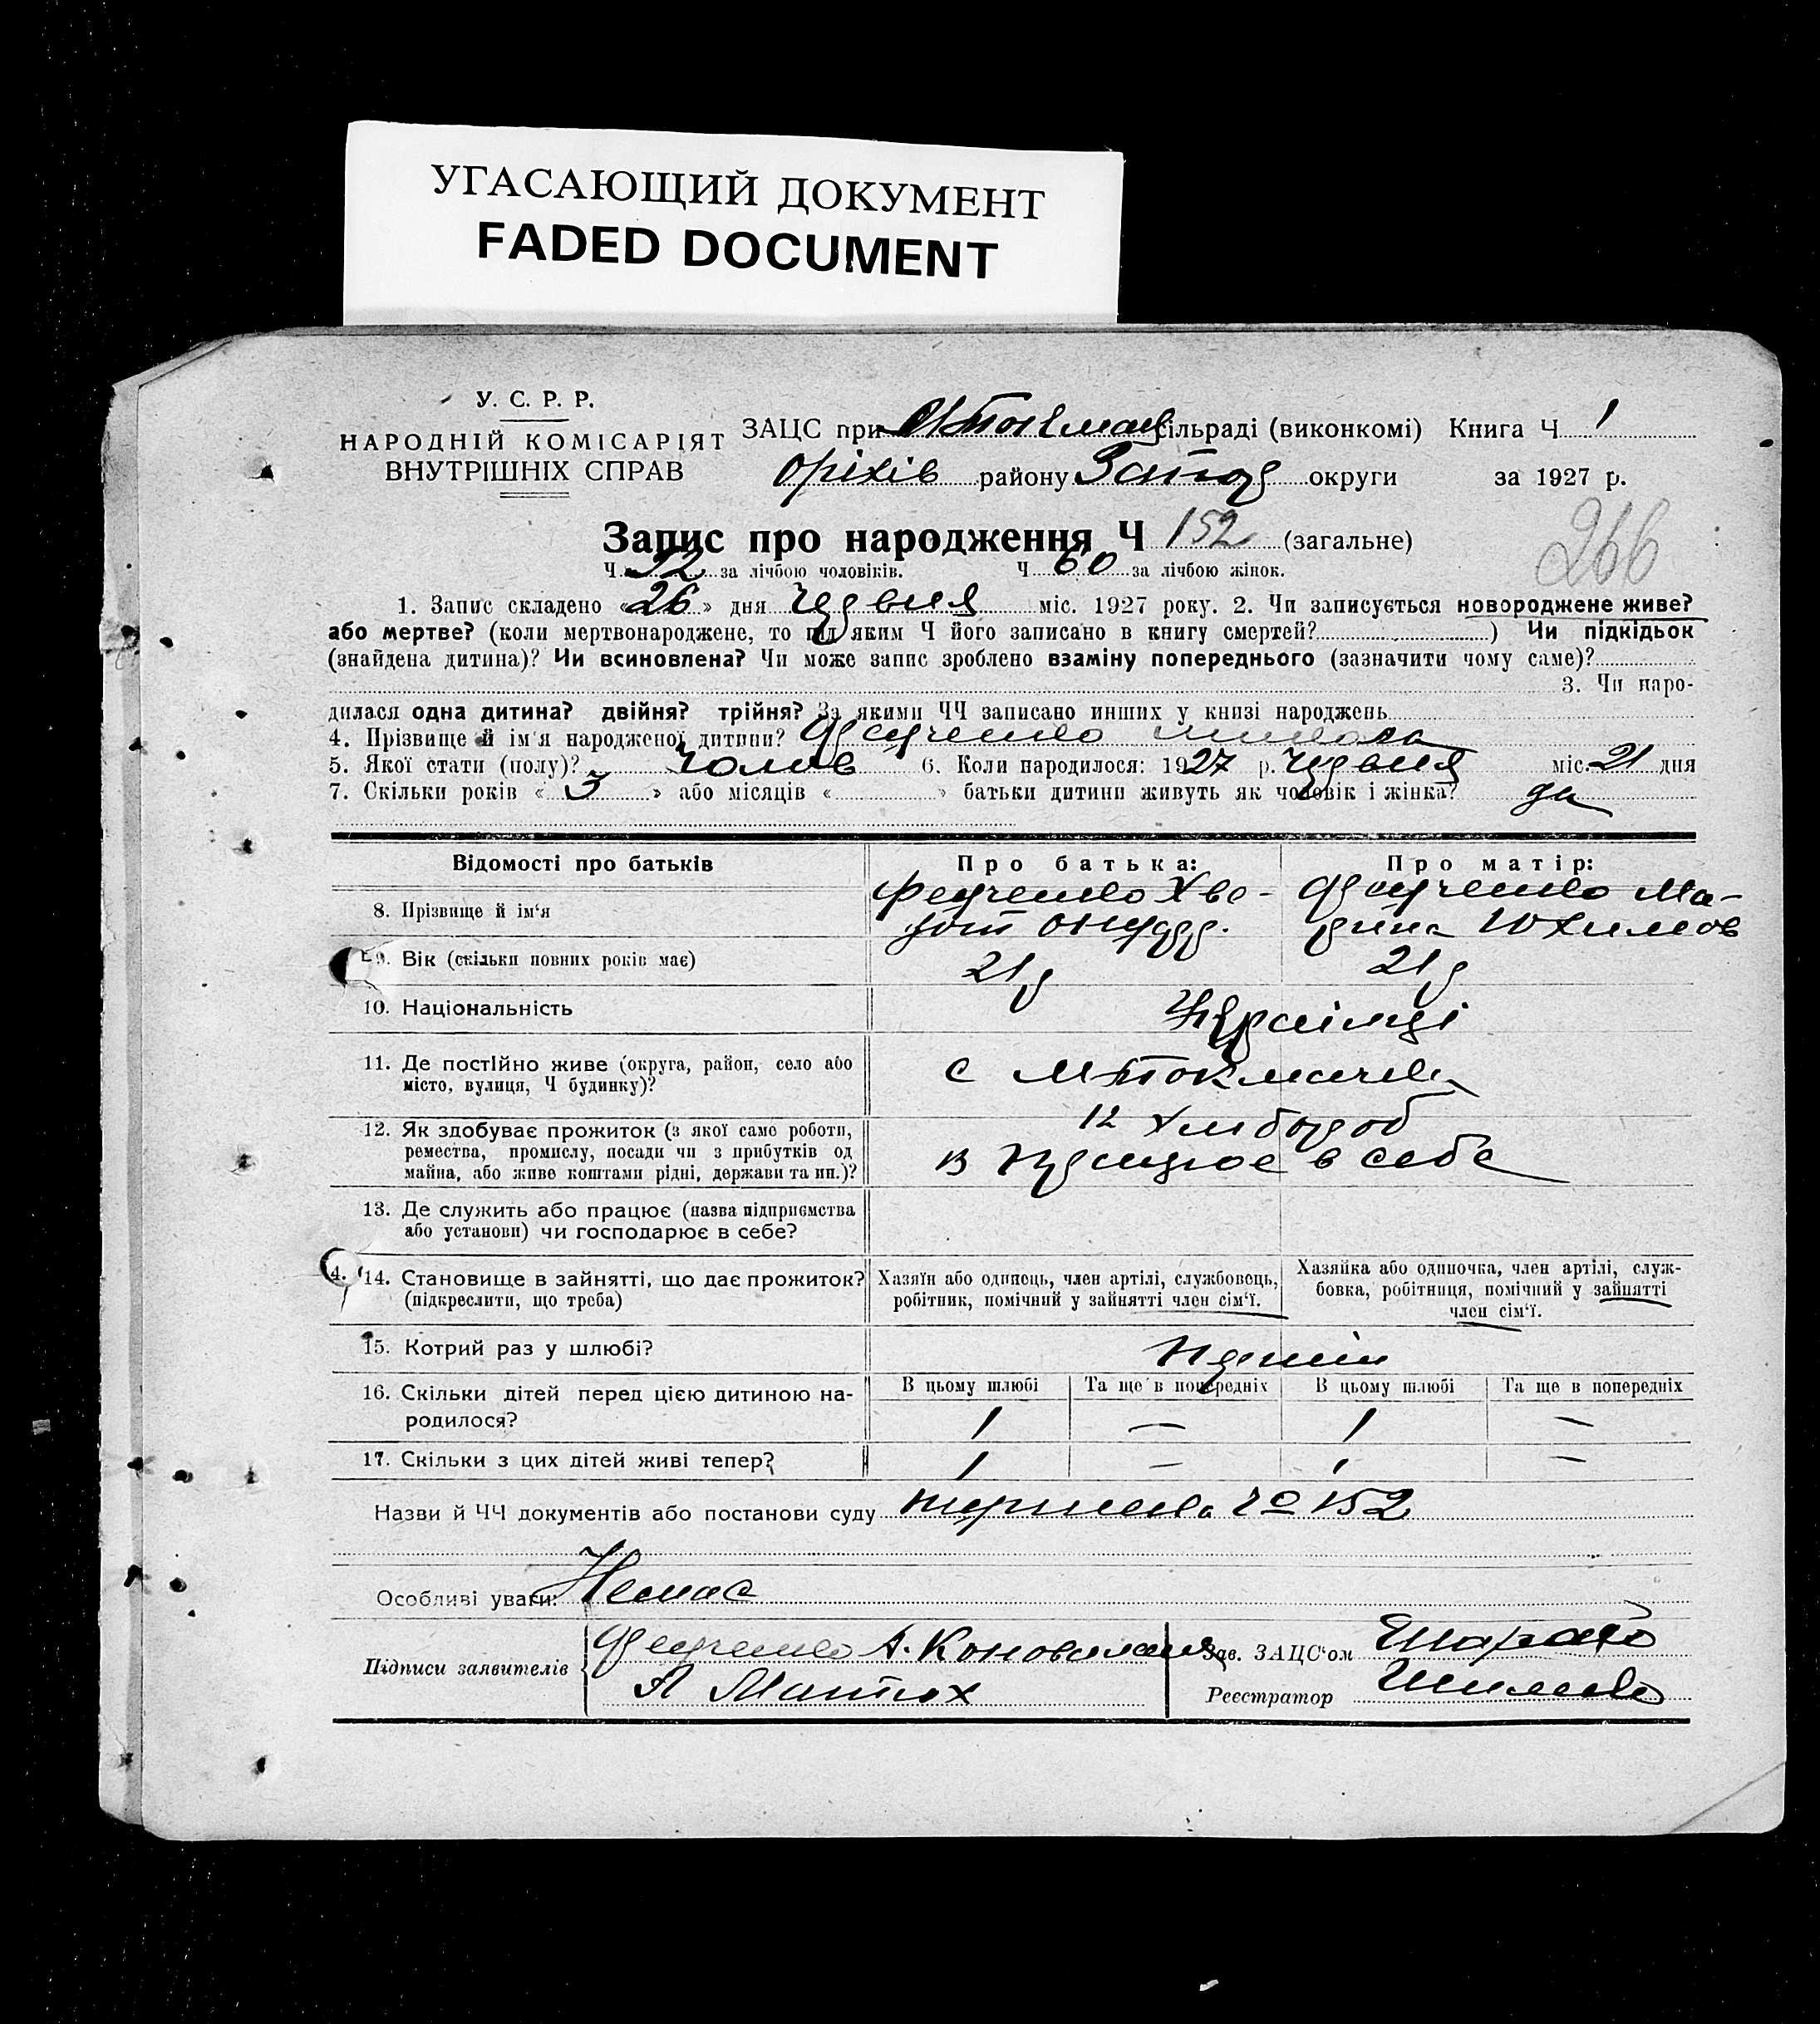 УГАСАЮЩИЙ ДОКУМЕНТ
FADED DOCUMENT
У. С. Р. Р.
НАРОДНІЙ КОМІСАРІЯТ
ВНУТРІШНІХ СПРАВ
ЗАЦС при сільраді (виконкомі) Книга Ч 1
Оріхів району Запор округи за 1927 р.
Запис про народження Ч 152 (загальне)
266
Ч 92 за лічбою чоловіків. Ч 60 за лічбою жінок.
1. Запис складено «26» дня червня міс. 1927 року. 2. Чи записується новороджене живе?
або мертве? (коли мертвонароджене, то під яким Ч його записано в книгу смертей? ) Чи підкідьок
(знайдена дитина)? Чи всиновлена? Чи може запис зроблено взаміну попереднього (зазначити чому саме)?
3. Чи наро-
дилася одна дитина? двійня? трійня? За якими ЧЧ записано инших у книзі народжень
4. Прізвище й ім'я народженої дитини? Федченко Микола
5. Якої стати (полу)? Чолов 6. Коли народилося: 1927 р. Червня міс. 21 дня
7. Скільки років « 3 » або місяців « » батьки дитини живуть як чоловік і жінка? да
Відомості про батьків Про батька: Про матір:
8. Прізвище й ім'я Федченко Хве- Федченко Ма-
Юхимов
9. Вік (скільки повних років має) 21 р 21 р
10. Національність Українці
11. Де постійно живе (округа, район, село або
місто, вулиця, Ч будинку)? с М Токмачка
12. Як здобуває прожиток (з якої само роботи,
ремества, промислу, посади чи з прибутків од
майна, або живе коштами рідні, держави та ин.)?
12 Хлібороб
13 Працює в себе
13. Де служить або працює (назва підприємства
або установи) чи господарює в себе?
4. 14. Становище в зайнятті, що дає прожиток?
(підкреслити, що треба)
Хазяїн або одинець, член артілі, службовець,
робітник, помічний у зайнятті член сім'ї.
Хазяйка або одиночка, член артілі, служ-
бовка, робітниця, помічний у зайнятті
член сім'ї.
15. Котрий раз у шлюбі? перший
16. Скільки дітей перед цією дитиною на-
родилося?
В цьому шлюбі Та ще в попередніх В цьому шлюбі Та ще в попередніх
1 — 1 —
17. Скільки з цих дітей живі тепер? 1 — 1 —
Назви й ЧЧ документів або постанови суду 152
Особливі уваги: Немає
Підписи заявителів Федченко А. Коновалов
А Матюх
Зав. ЗАЦС'ом
Реєстратор